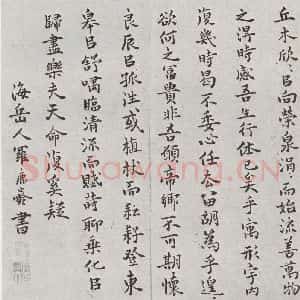 丘木欣〻㠯向榮泉涓而始流善萬物
之得時感吾生行休矣乎寓形宇内
復幾時曷不委心任去留胡為乎遑
欲何之富貴非吾願帝鄉不可期懷
良辰㠯孤往或植杖而耘耔登東
皋㠯舒嘯臨清流而賦時聊乘化㠯
歸盡樂夫天命復奚疑
海岳人書
Shufawang.CN